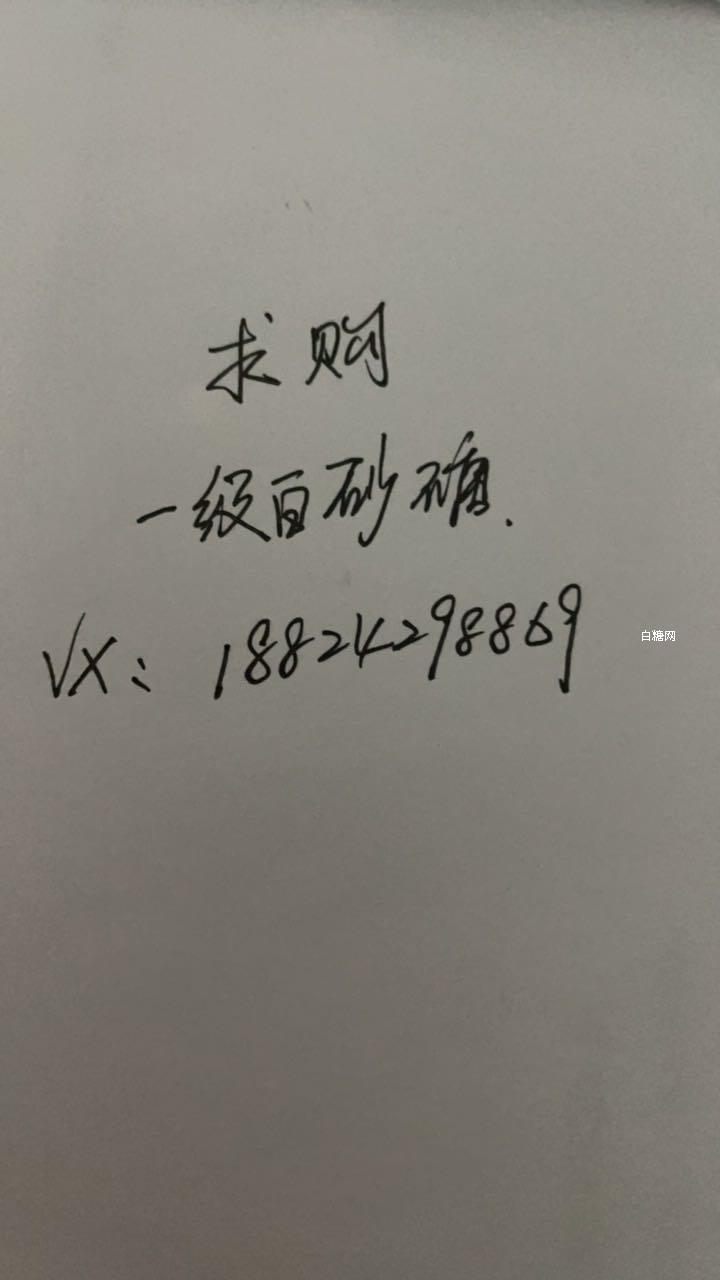 求购
一级白砂糖.
VX：18824298869
白糖网